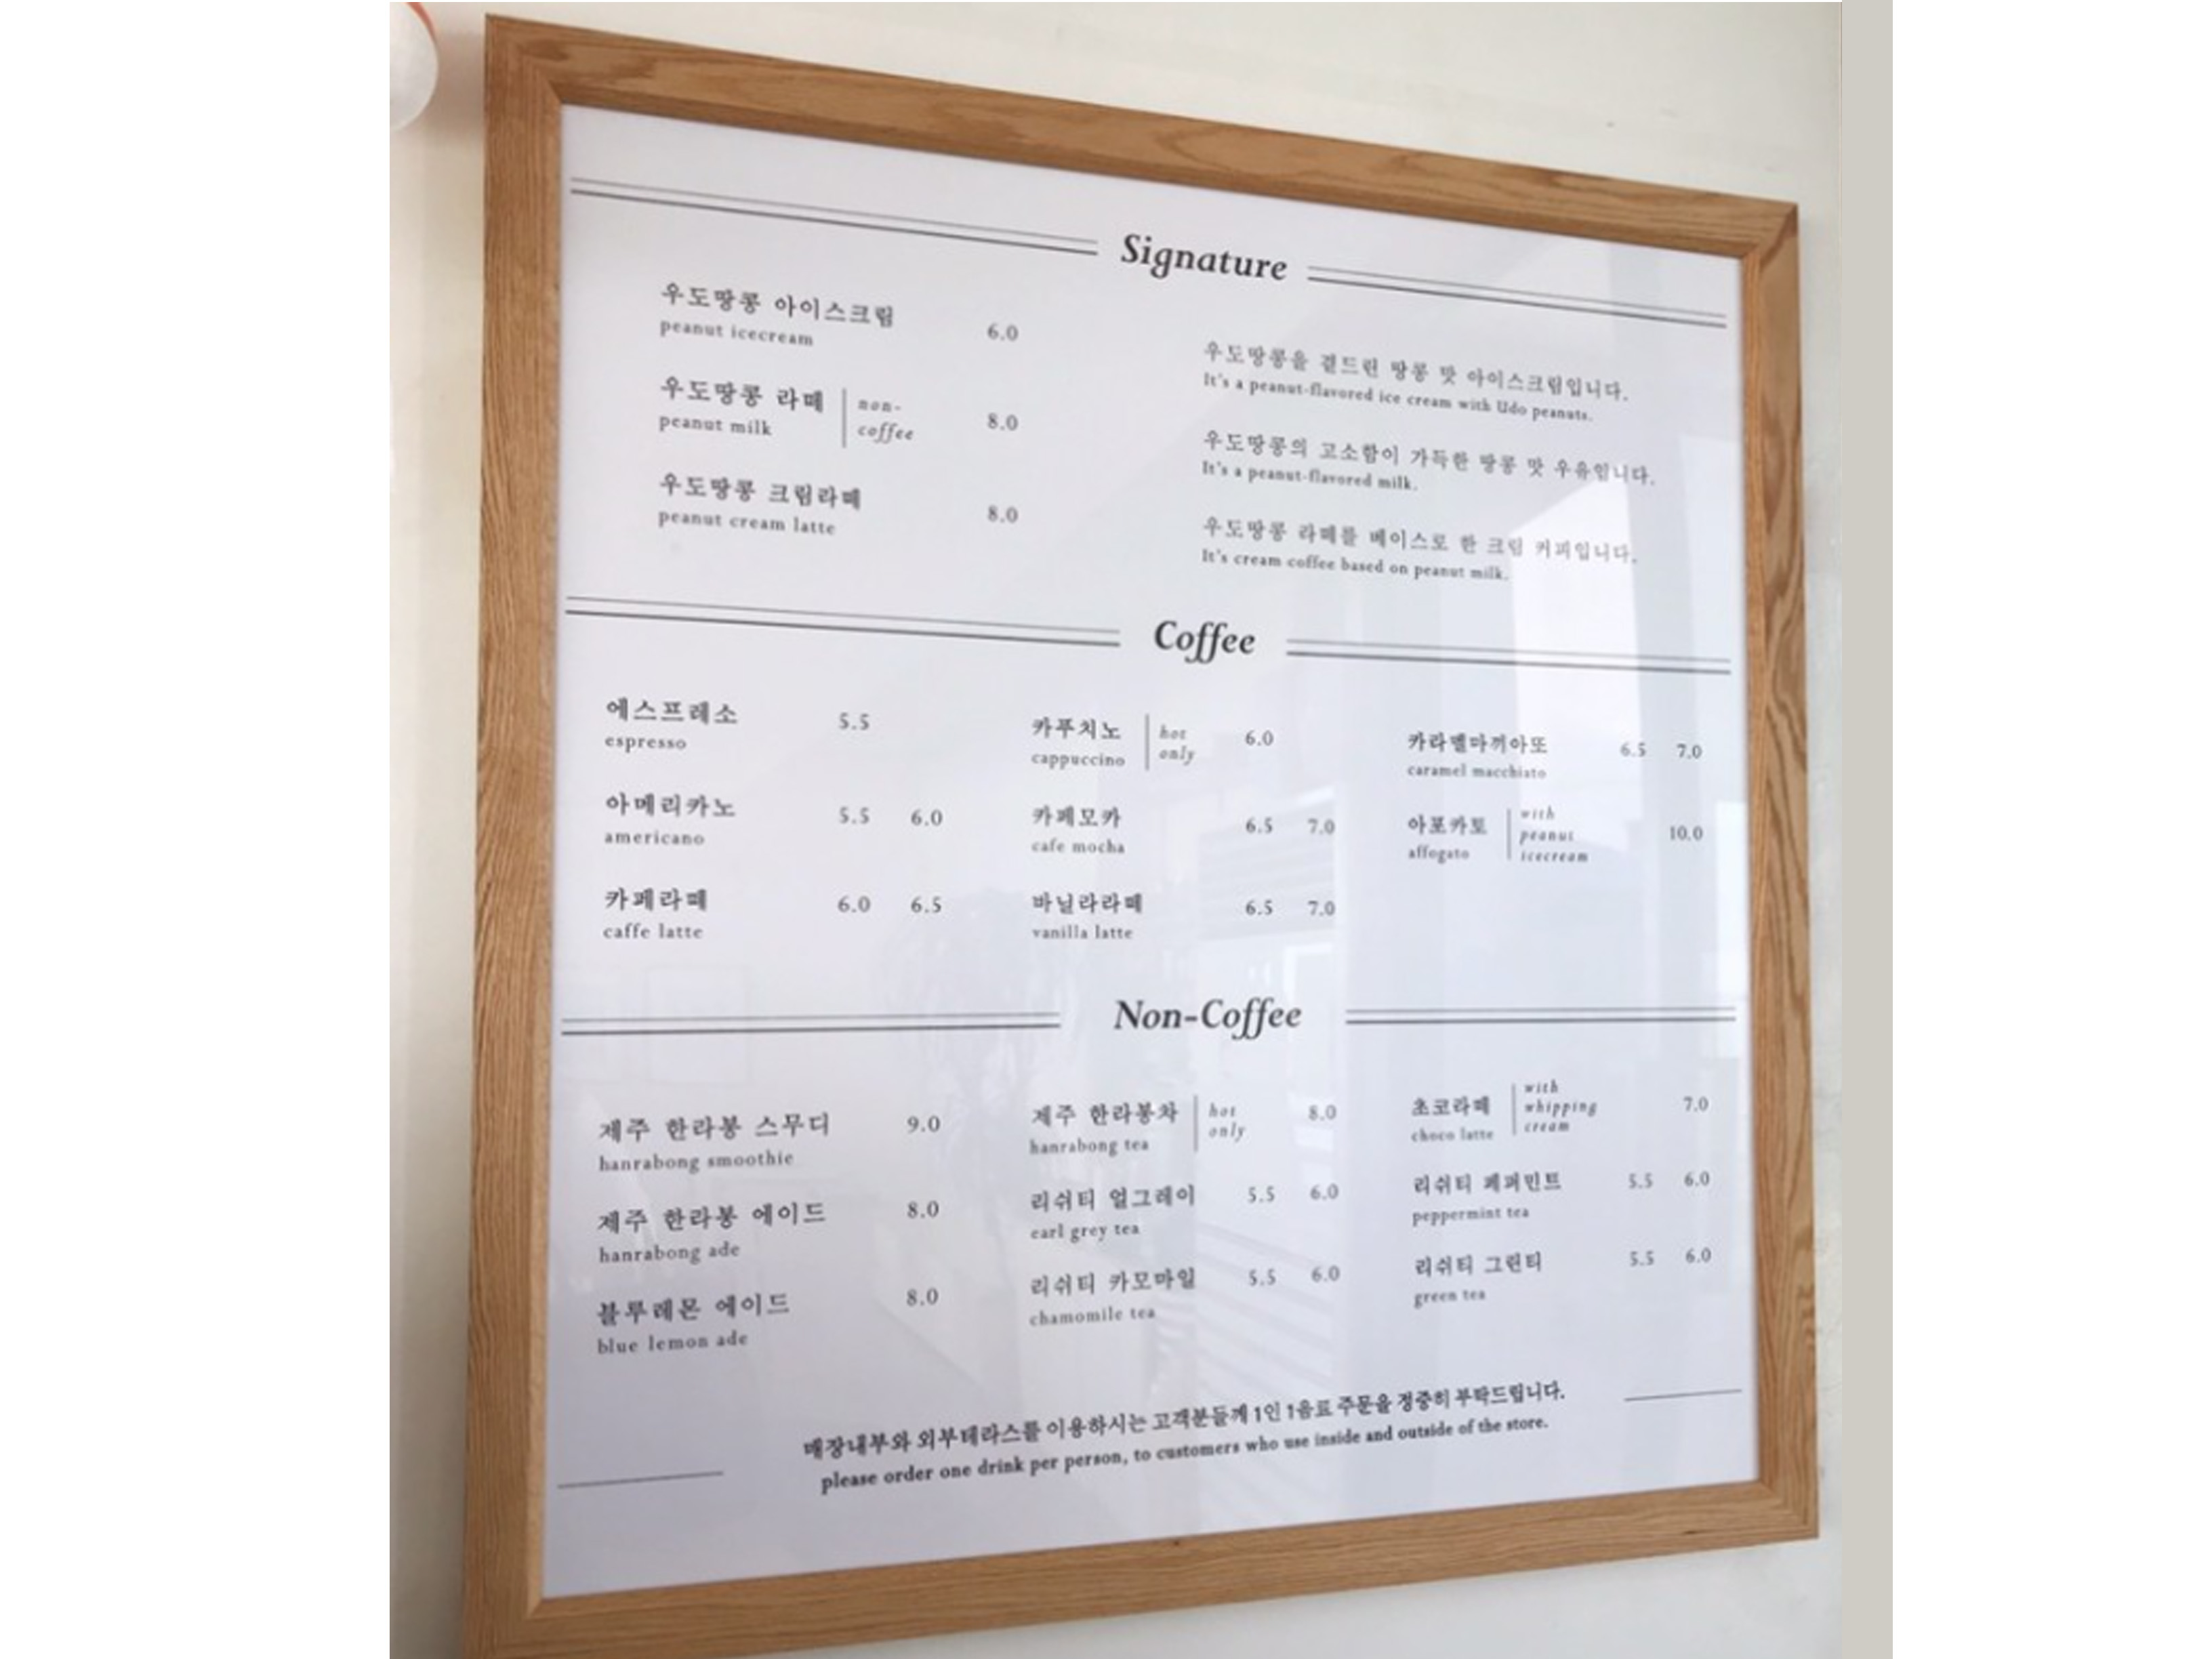 Signature
우도땅콩 아이스크림 6.0
peanut icecream
우도땅콩 라떼 non-coffee 8.0
peanut milk
우도땅콩 크림라떼 8.0
peanut cream latte
우도땅콩을 곁드린 땅콩 맛 아이스크림입니다.
It's a peanut-flavored ice cream with Udo peanuts.
우도땅콩의 고소함이 가득한 땅콩 맛 우유입니다.
It's a peanut-flavored milk.
우도땅콩 라떼를 베이스로 한 크림 커피입니다.
It's cream coffee based on peanut milk.
Coffee
에스프레소 5.5
espresso
아메리카노 5.5 6.0
americano
카페라떼 6.0 6.5
caffe latte
카푸치노 hot only 6.0
cappuccino
카페모카 6.5 7.0
cafe mocha
바닐라라떼 6.5 7.0
vanilla latte
카라멜마끼아또 6.5 7.0
caramel macchiato
아포카토 with peanut icecream 10.0
affogato
Non-Coffee
제주 한라봉 스무디 9.0
hanrabong smoothie
제주 한라봉 에이드 8.0
hanrabong ade
블루레몬 에이드 8.0
blue lemon ade
제주 한라봉차 hot only 8.0
hanrabong tea
리쉬티 얼그레이 5.5 6.0
earl grey tea
리쉬티 카모마일 5.5 6.0
chamomile tea
초코라떼 with whipping cream 7.0
choco latte
리쉬티 페퍼민트 5.5 6.0
peppermint tea
리쉬티 그린티 5.5 6.0
green tea
매장내부와 외부테라스를 이용하시는 고객분들께 1인 1음료 주문을 정중히 부탁드립니다.
please order one drink per person, to customers who use inside and outside of the store.